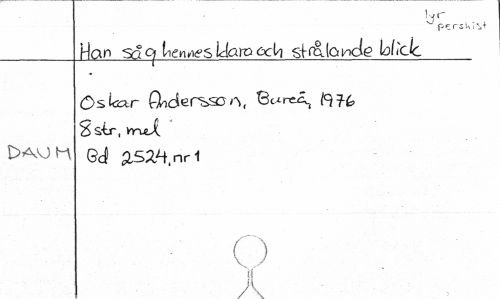 lyr
pershist
Han såg hennes klara och strålande blick
Oskar Andersson, Bureå, 1976
8 str, mel
DAUM Bd 2524, nr 1